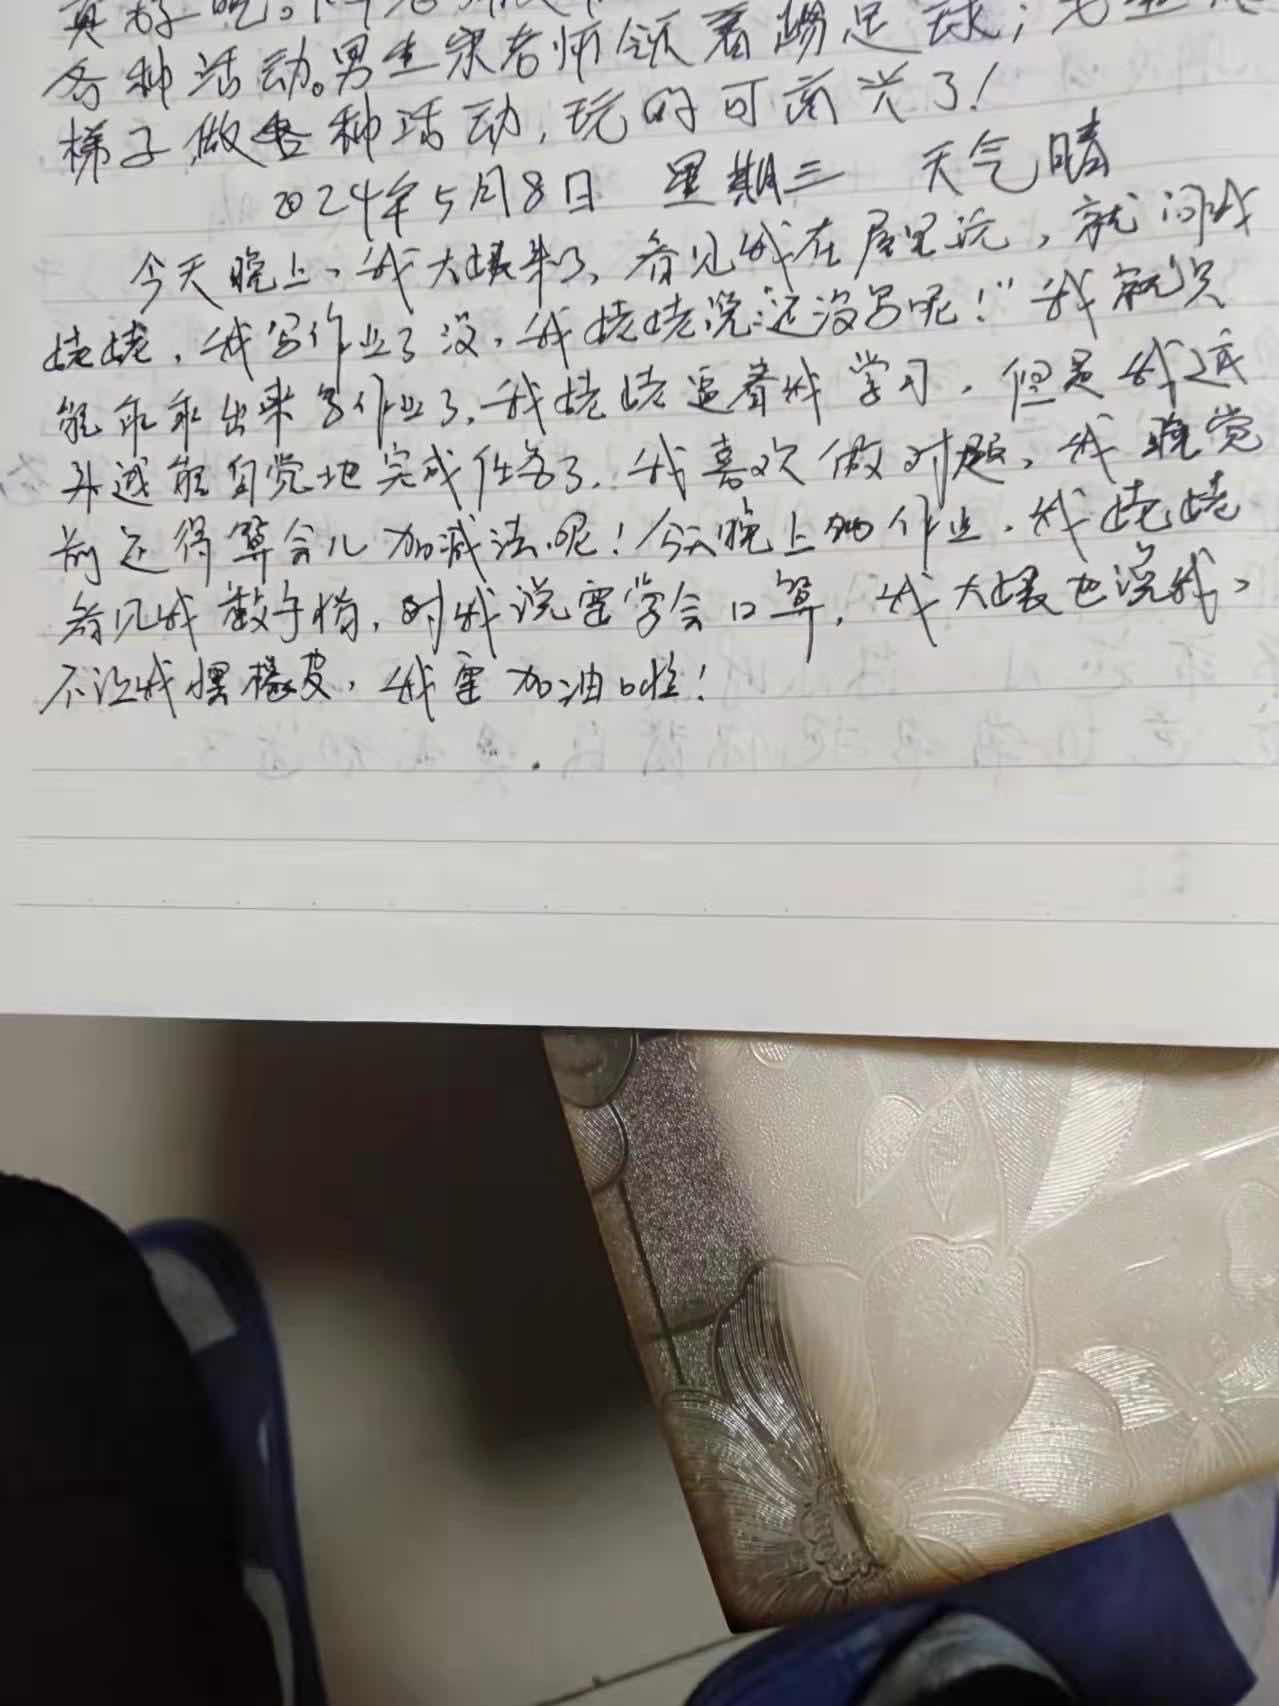 真好呢。
各种活动。男生宋老师领着踢足球；
梯子做各种活动，玩的可高兴了！
2024年5月8日 星期三 天气晴
今天晚上，我大姨来了，看见我在屋里玩，就问我
姥姥，我写作业了没，我姥姥说：还没写呢！"我就只
能乖乖出来写作业了，我姥姥逼着我学习，但是我适
并越能自觉地完成任务了，我喜欢做对题，我睡觉
前还得算会儿加减法呢！今天晚上的作业，我姥姥
看见我数手指，对我说要学会口算，我大姨也说我，
不让我摆橡皮，我要加油啦！